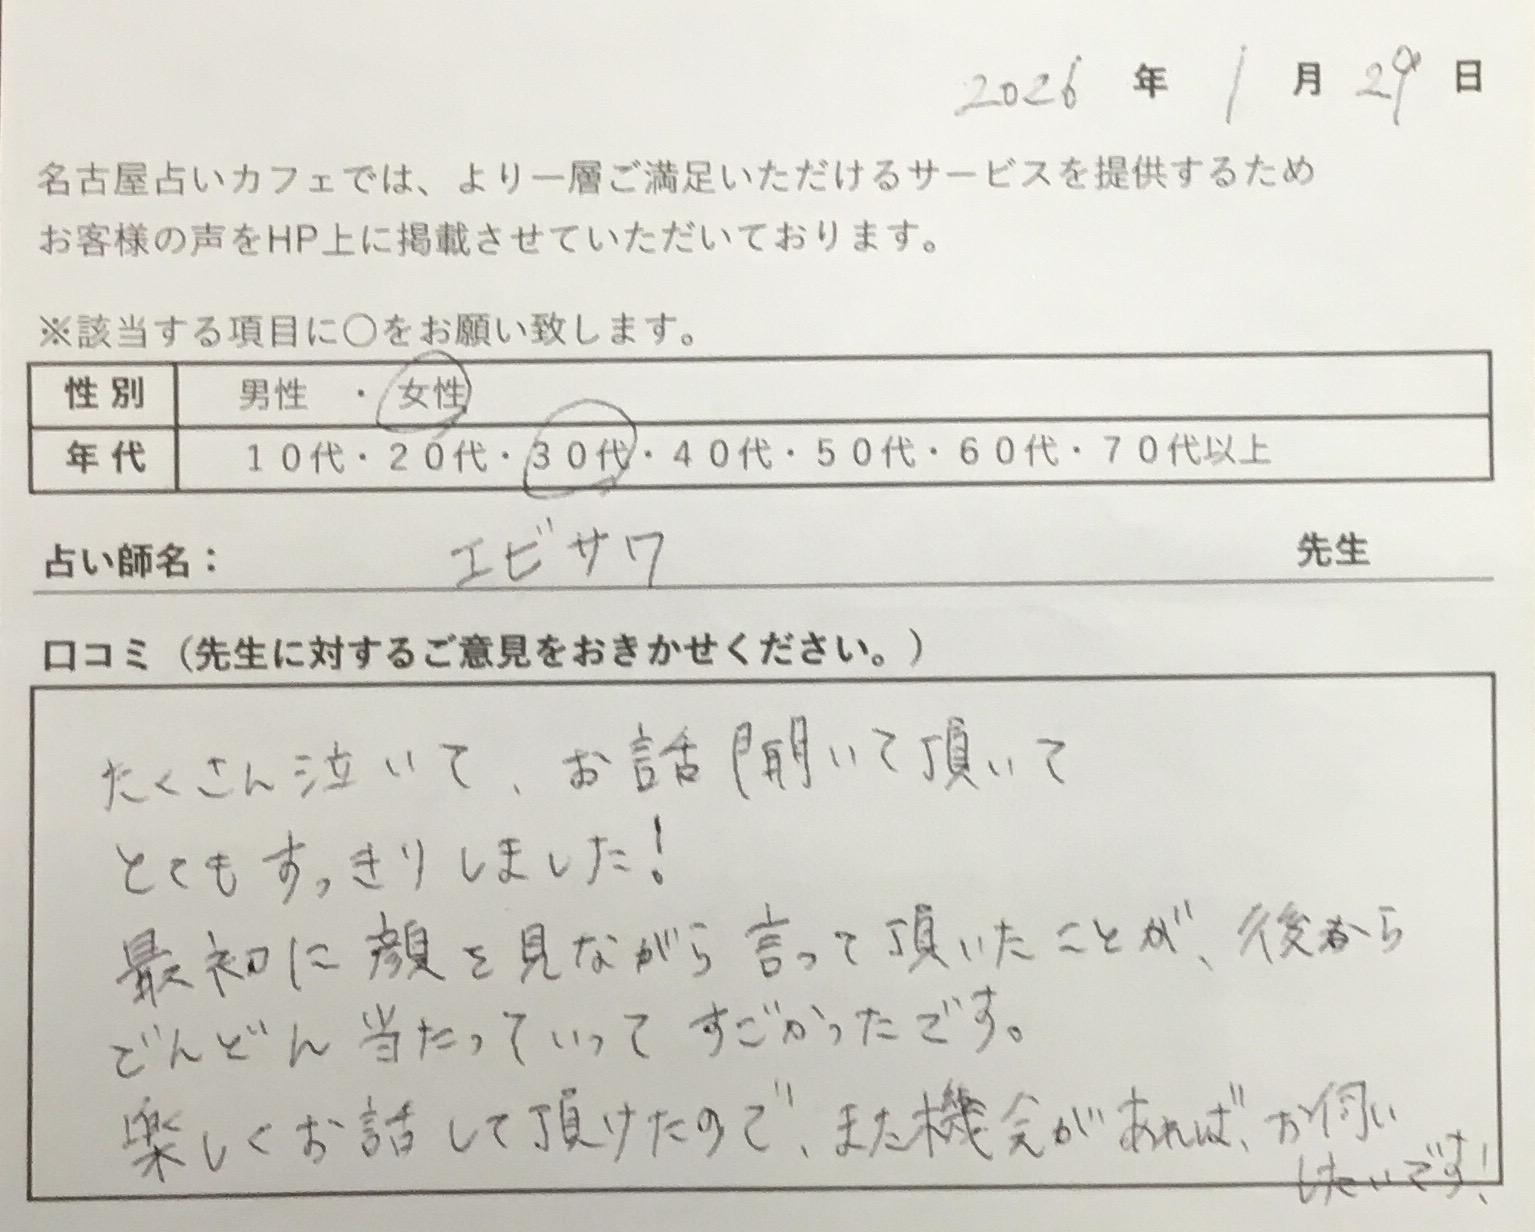 2026 年 1 月 29 日
名古屋占いカフェでは、より一層ご満足いただけるサービスを提供するため
お客様の声をHP上に掲載させていただいております。
※該当する項目に〇をお願い致します。
性別 男性 ・ 女性
年代 10代・20代・30代・40代・50代・60代・70代以上
占い師名： エビサワ 先生
口コミ（先生に対するご意見をおきかせください。）
たくさん泣いて、お話聞いて頂いて
とてもすっきりしました!
最初に顔を見ながら言って頂いたことが、後から
どんどん当たっていってすごかったです。
楽しくお話して頂けたので、また機会があれば、お伺い
したいです!